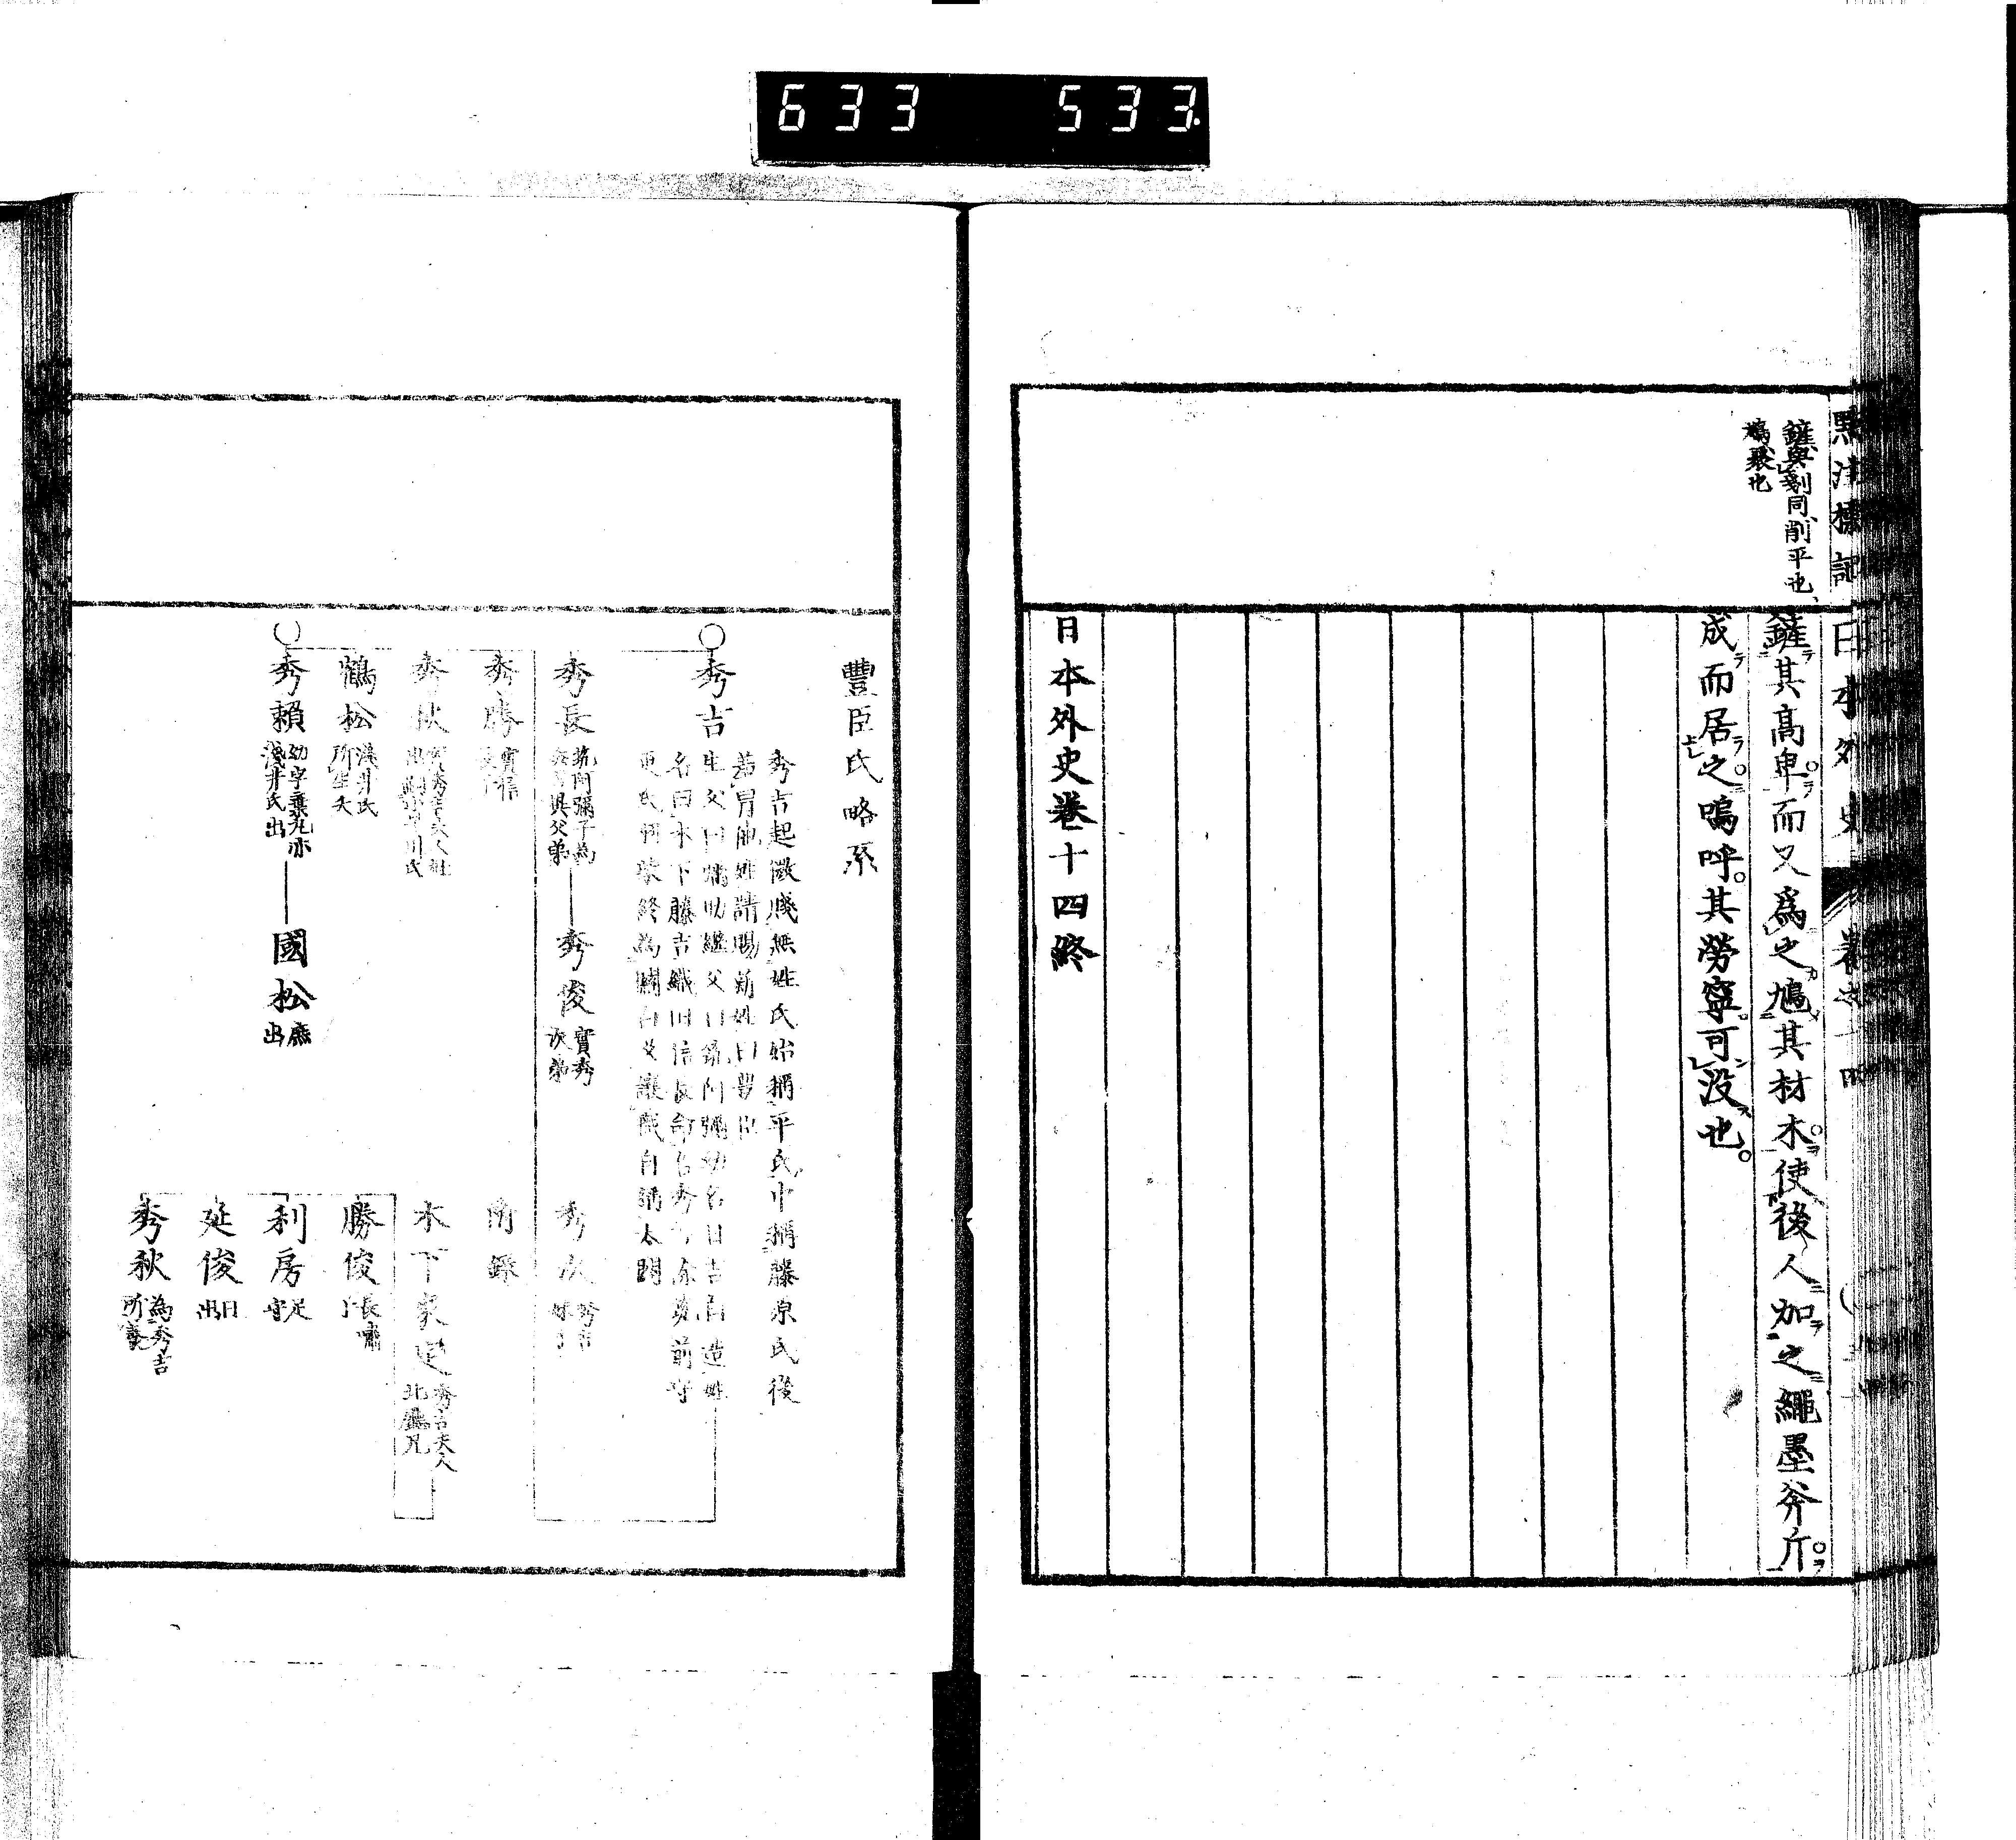 633 533
點注標記
日本外史
鏟與剗同、削平也、
鳩、聚也
鏟其高卑而又爲之鳩其材木使後人加之繩墨斧斤
成而居之嗚呼其勞寧可沒也
日本外史卷十四終
豐臣氏略系
秀吉
秀吉起微賤無姓氏始稱平氏中稱藤原氏後
姓請賜新姓曰豐臣
生父曰 助繼父曰 阿彌幼名日吉自造姓
名曰木下藤吉織田信長命名秀吉 前守
終為關白又讓職自稱太閤
秀長 筑阿彌子為
異父弟
秀俊 實秀
次弟
秀次 秀吉
秀勝 實信
秀秋
鶴松 淺井氏
所生夭
秀賴 幼字棄丸亦
淺井氏出
國松 庶
出
附錄
木下家定 秀吉夫人
北廳兄
勝俊 長嘯
子
利房 足
守
延俊 日
出
秀秋 為秀吉
所養